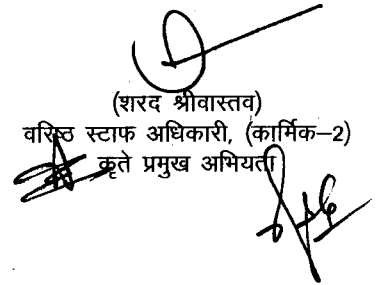 (शरद श्रीवास्तव)
वरिष्ठ स्टाफ अधिकारी, (कार्मिक–2)
कृते प्रमुख अभियता